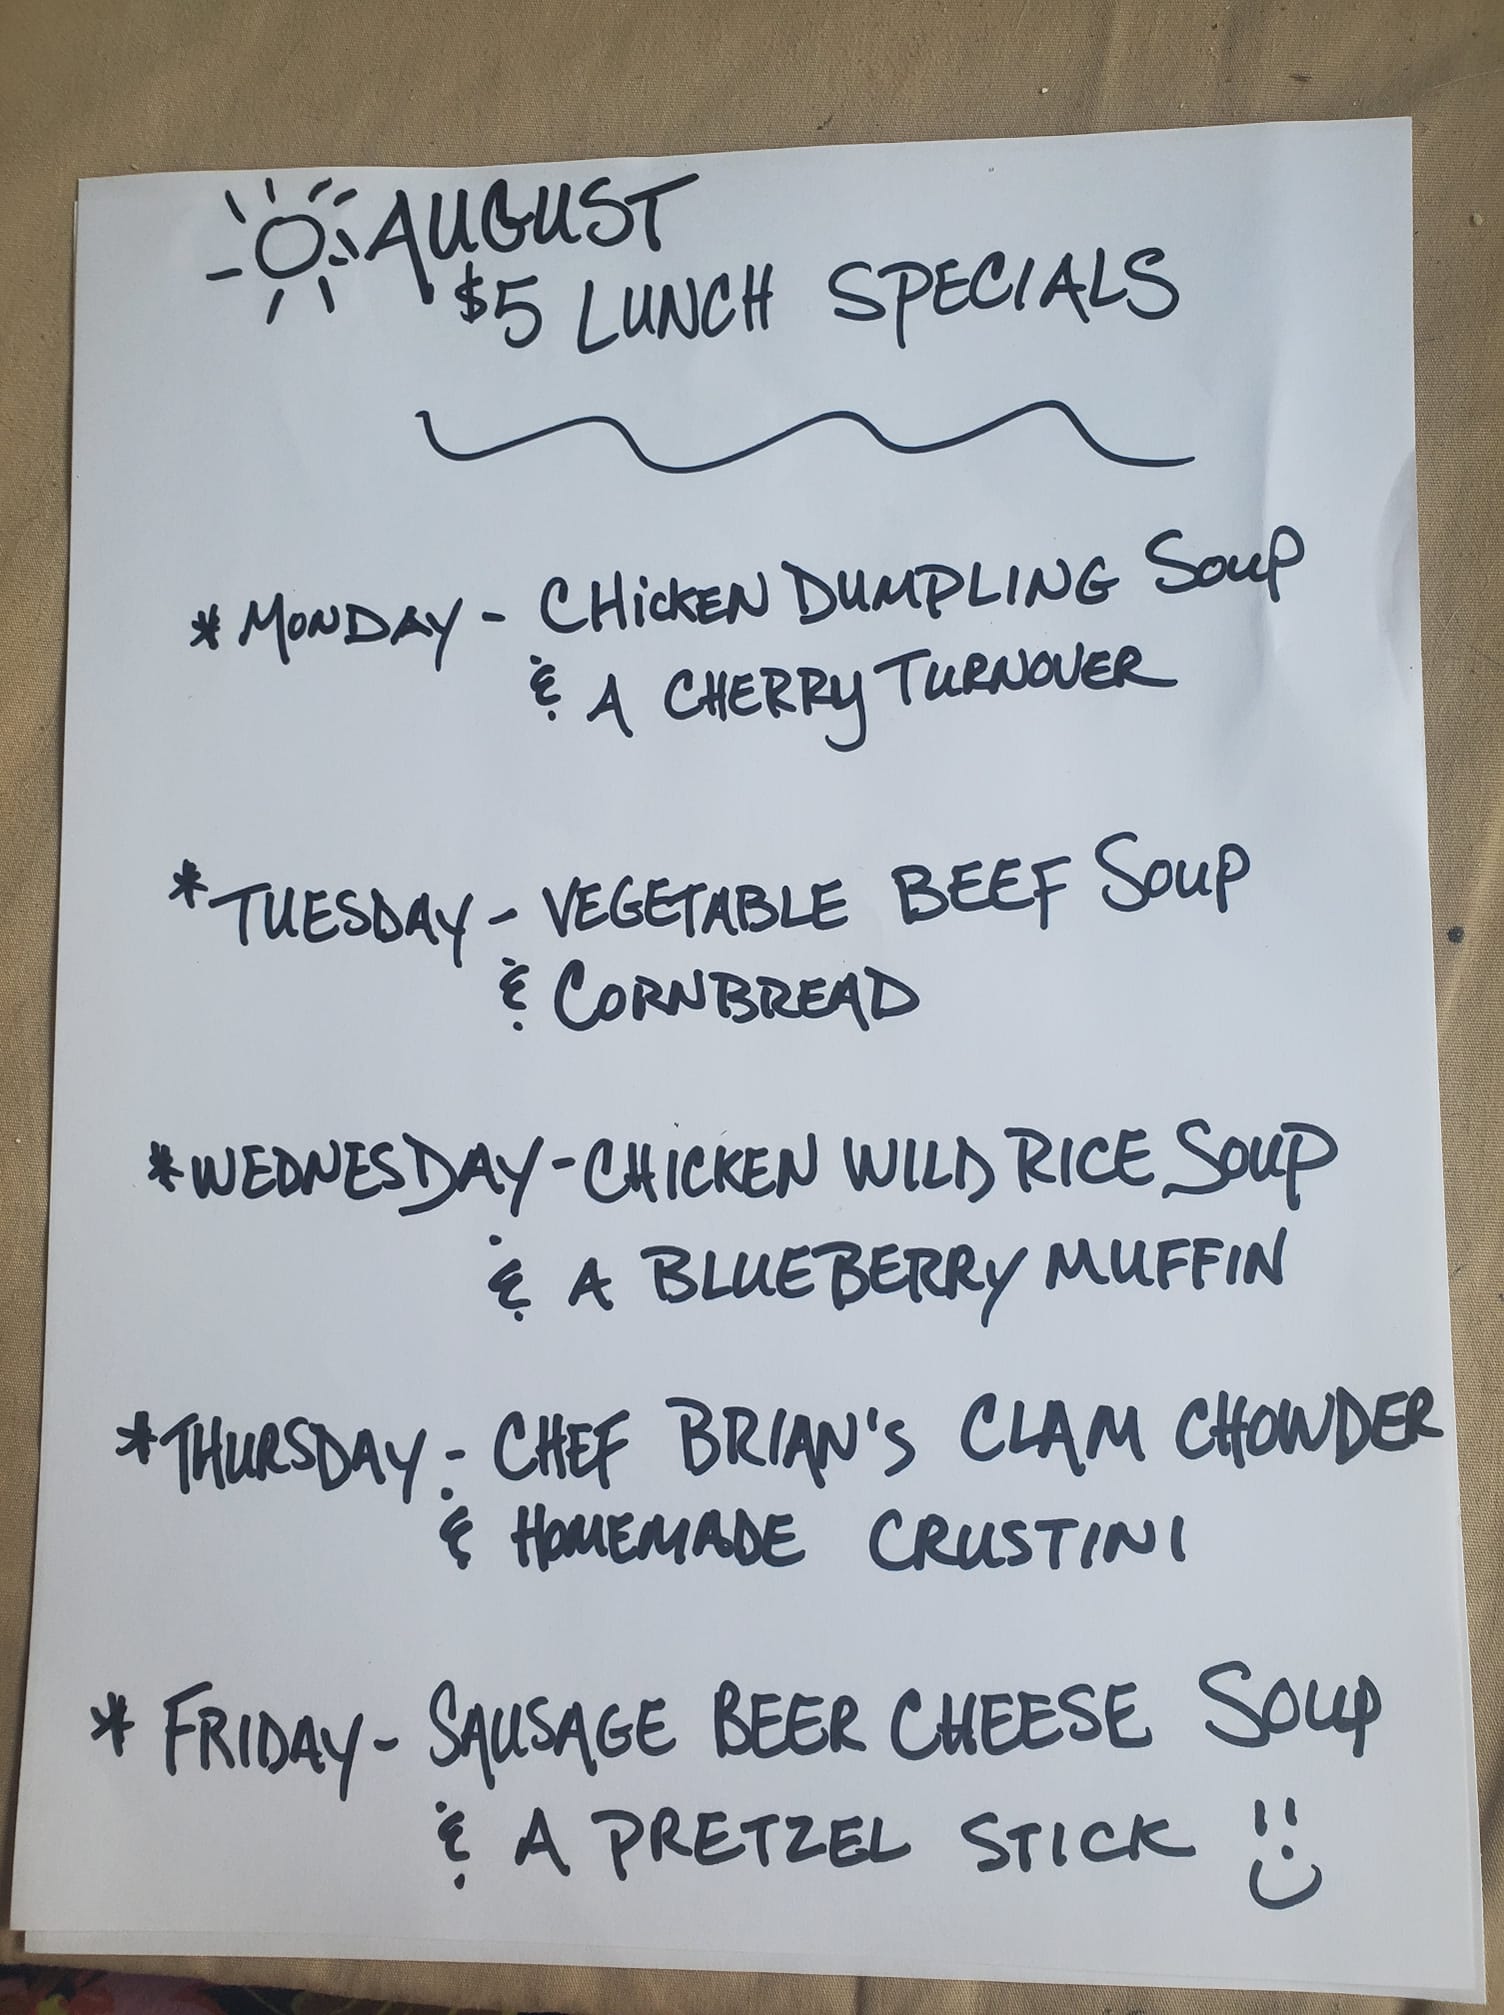 AUGUST
$5 LUNCH SPECIALS
* MONDAY - CHiCKEN DUMPLING SOUP
& A CHERRY TURNOVER
* TUESDAY - VEGETABLE BEEF SOUP
& CORNBREAD
* WEDNESDAY - CHICKEN WILD RICE SOUP
& A BLUEBERRY MUFFIN
* THURSDAY - CHEF BRIAN'S CLAM CHOWDER
& HOMEMADE CRUSTINI
* FRIDAY - SAUSAGE BEER CHEESE SOUP
& A PRETZEL STICK